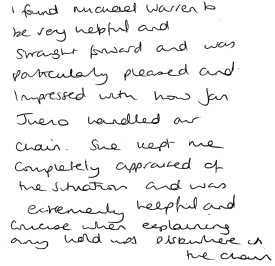 I found Michael Warren to
be very helpful and
straight forward and was
particularly pleased and
impressed with how Jan
handled our
chain. She kept me
completely appraised of
the situation and was
extremely helpful and
concise when explaining
any hold ups elsewhere in
the chain